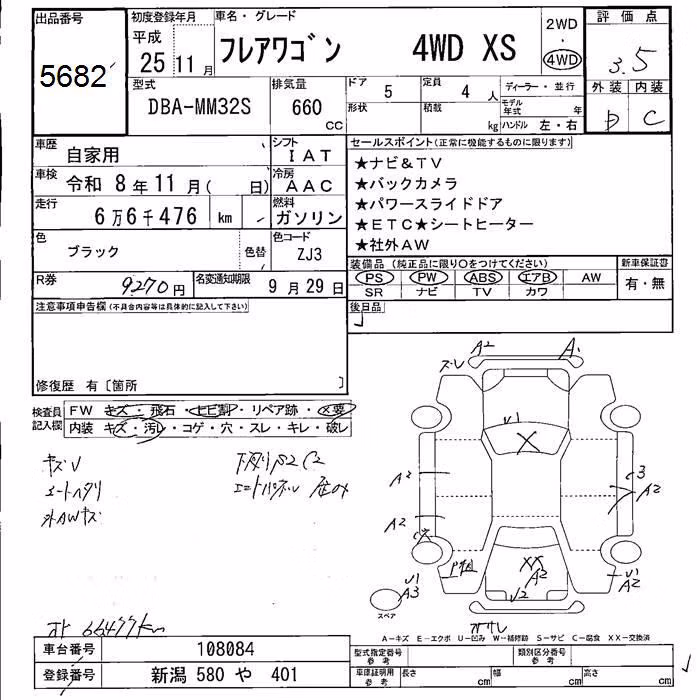 出品番号
5682
初度登録年月
平成
25 11月
車名・グレード
フレアワゴン 4WD XS
2WD
・
4WD
評価点
3.5
外装 内装
D C
型式
DBA-MM32S
排気量
660
cc
ドア
5
定員
4 人
ディーラー・並行
形状
積載
kg
モデル年式
年
ハンドル 左・右
車歴
自家用
シフト
IAT
車検
令和 8年11月( 日)
冷房
AAC
走行
6万6千476 km
燃料
ガソリン
色
ブラック
色替
色コード
ZJ3
R券
9270円
名変通知期限
9月29日
セールスポイント(正常に機能するものに限ります)
★ナビ&TV
★バックカメラ
★パワースライドドア
★ETC★シートヒーター
★社外AW
装備品(純正品に限り○をつけてください)
新車保証書
PS PW ABS エアB AW
有・無
SR ナビ TV カワ
後日品
注意事項申告欄(不具合内容等は具体的に記入して下さい)
修復歴 有〔箇所 〕
検査員
記入欄
FW キズ・飛石・ヒビ割・リペア跡・X要
内装 キズ・汚レ・コゲ・穴・スレ・キレ・破レ
キズV
シートヘタリ
外AWキズ
下廻りS2 C2
オド 66477km
A2
A1
V1
X
A2
A2
3
A2
XX
A2
V2
V1
A2
V1
A3
スペア
A-キズ E-エクボ U-凹み W-補修跡 S-サビ C-腐食 XX-交換済
車台番号
108084
登録番号
新潟 580 や 401
型式指定番号
参考
類別区分番号
参考
車庫証明用
参考
長さ
cm
幅
cm
高さ
cm